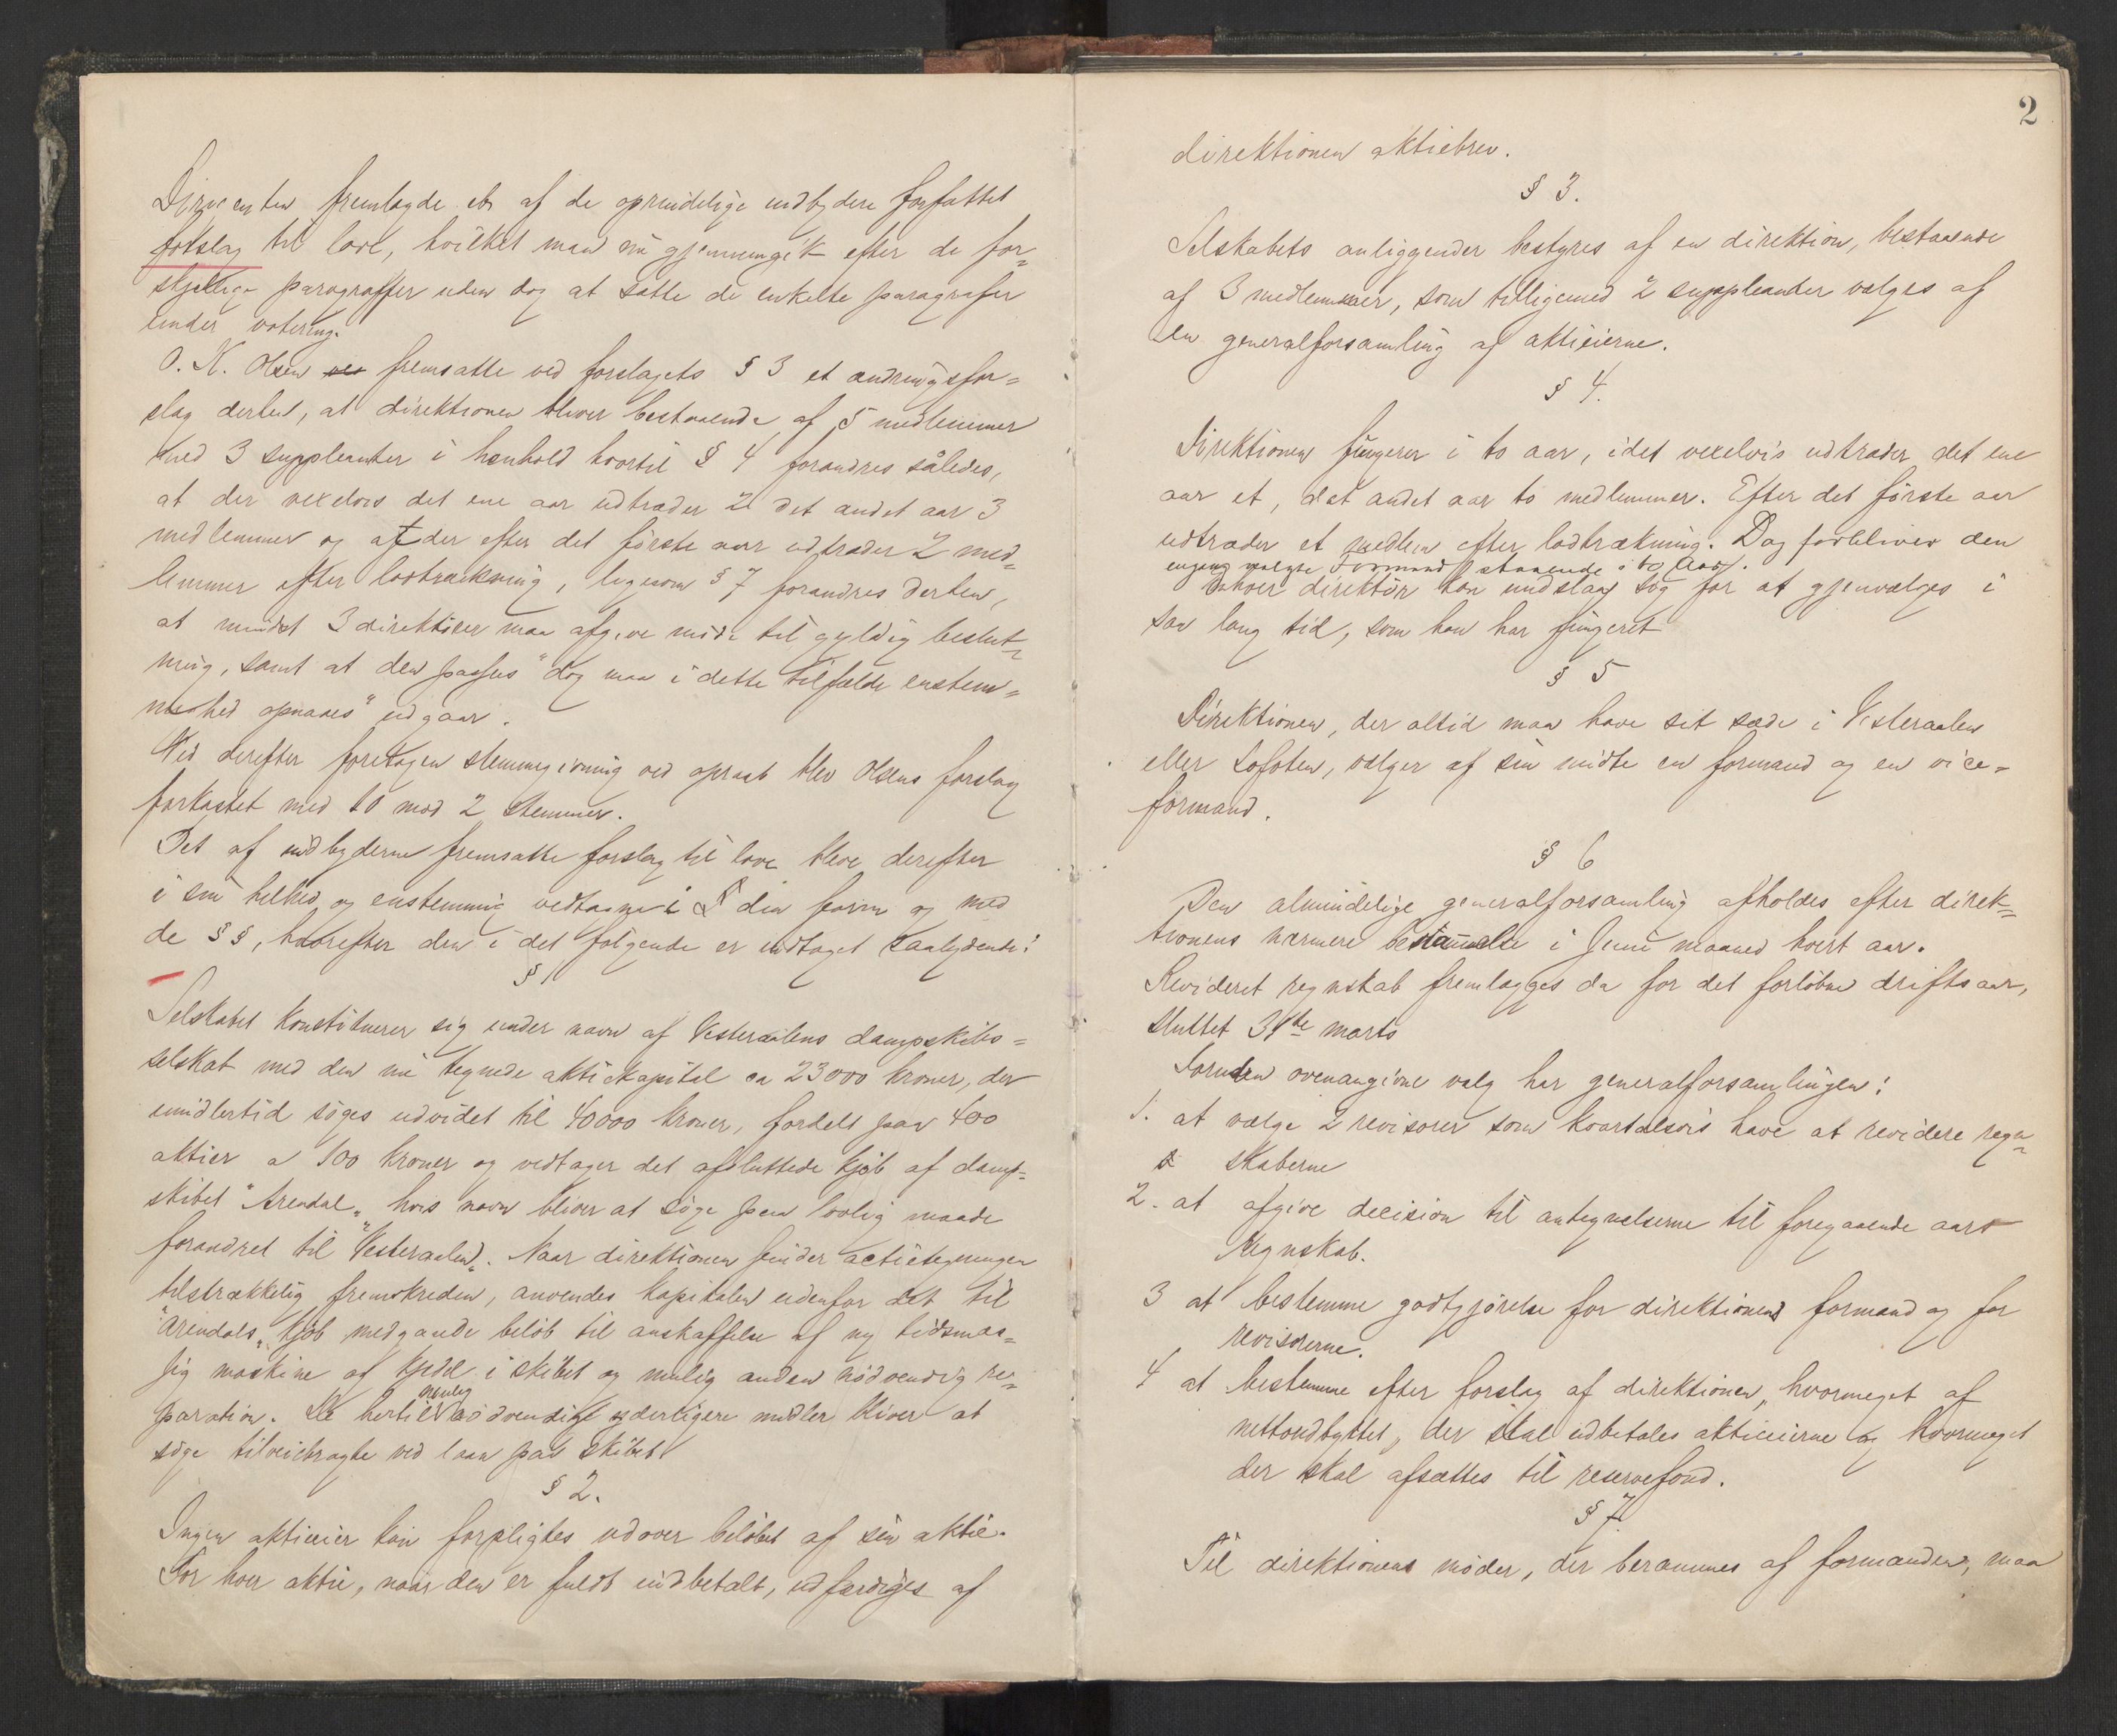 Dirigenten fremlagde et af de oprindelige indbydere forfattet
forslag til love, hvilket man nu gjennemgik efter de for=
skjellige paragraffer uden dog at sætte de enkelte paragrafer
under votering.
O. K. Olsen fremsatte ved forslagets § 3 et ændringsfor=
slag derhen, at direktionen bliver bestaaende af 5 medlemmer
med 3 suppleanter i henhold hvortil § 4 forandres således,
at der vexelvis det ene aar udtræder 2 det andet aar 3
medlemmer og at der efter det første aar udtræder 2 med=
lemmer efter lodtrækning, ligesom § 7 forandres derhen,
at mindst 3 direktører maa afgive møde til gyldig beslut=
ning, samt at den passus "dog maa i dette tilfælde enstem=
mighed opnaaes" udgaar.
Ved derefter foretagen stemmegivning ved opraab blev Olsens forslag
forkastet med 10 mod 2 stemmer.
Det af indbyderne fremsatte forslag til love blev derefter
i sin helhed og enstemmig vedtagne i den form og med
de §§, hvorefter den i det følgende er indtaget saalydende:
§ 1
Selskabet konstituerer sig under navn af Vesteraalens dampskibs=
selskab med den nu tegnede aktiekapital ca 23000 kroner, der
imidlertid søges udvidet til 40000 kroner, fordelt paa 400
aktier a 100 kroner og vedtager det afsluttede kjøb af damp=
skibet "Arendal", hvis navn bliver at søge paa lovlig maade
forandret til "Vesteraalen". Naar direktionen finder actietegningen
tilstrækkelig fremskreden, anvendes kapitalen udenfor det til
"Arendals" kjøb medgaaede beløb til anskaffelse af ny tidsmæs=
sig maskine og kjedel i skibet og mulig anden nødvendig re=
paration. De hertil mulig nødvendige yderligere midler bliver at
søge tilveiebragte ved laan paa skibet
§ 2.
Ingen aktieeier kan forpligtes udover beløbet af sin aktie.
For hver aktie, naar den er fuldt indbetalt, udfærdiges af
2
direktionen aktiebrev.
§ 3.
Selskabets anliggender bestyres af en direktion, bestaaende
af 3 medlemmer, som tilligemed 2 suppleanter vælges af
en generalforsamling af aktieierne.
§ 4.
Direktionen fungerer i to aar, idet vexelvis udtræder det ene
aar et, det andet aar to medlemmer. Efter det første aar
udtræder et medlem efter lodtrækning. Dog forbliver den
engang valgte Formand staaende i to Aar.
Enhver direktør kan undslaa sig for at gjenvælges i
saa lang tid, som han har fungeret
§ 5
Direktionen, der altid maa have sit sæde i Vesteraalen
eller Lofoten, vælger af sin midte en formand og en vice=
formand.
§ 6
Den almindelige generalforsamling afholdes efter direk=
tionens nærmere bestemmelse i Juni maaned hvert aar.
Revideret regnskab fremlægges da for det forløbne driftsaar,
sluttet 31te marts
Foruden ovenangivne valg har generalforsamlingen:
1. at vælge 2 revisorer som kvartalsvis have at revidere regn=
skaberne
2. at afgive decision til antegnelserne til foregaaende aars
regnskab.
3 at bestemme godtgjørelse for direktionens formand og for
revisorerne.
4 at bestemme efter forslag af direktionen, hvormeget af
nettoudbyttet, der skal udbetales aktieeierne og hvormeget
der skal afsættes til reservefond.
§ 7.
Til direktionens møder, der berammes af formanden, maa